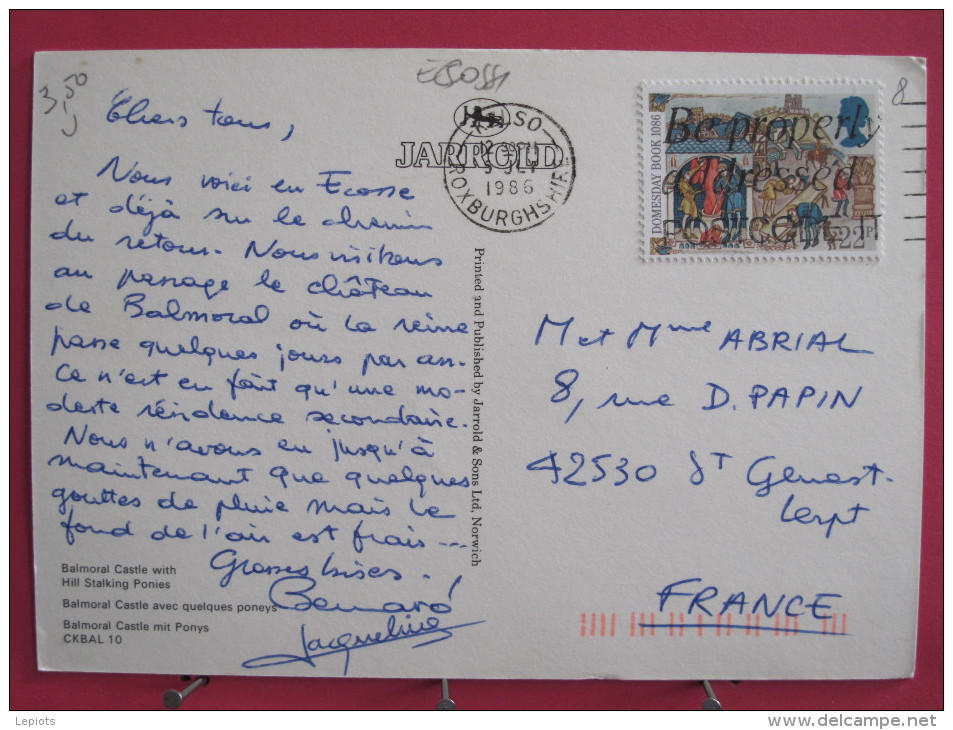 3,50
ECOSSE
8
Chers tous,
Nous voici en Ecosse
et déjà sur le chemin
du retour. Nous visitons
au passage le château
de Balmoral où la reine
passe quelques jours par an.
Ce n'est en fait qu'une mo-
deste résidence secondaire.
Nous n'avons eu jusqu'à
maintenant que quelques
gouttes de pluie mais le
fond de l'air est frais ---
Grosses bises.
Bernard
Jacqueline
Balmoral Castle with
Hill Stalking Ponies
Balmoral Castle avec quelques poneys
Balmoral Castle mit Ponys
CKBAL 10
JARROLD
Printed and Published by Jarrold & Sons Ltd, Norwich
KELSO
1986
ROXBURGHSHIRE
Be properly
addressed
DOMESDAY BOOK 1086
22P
M et Mme ABRIAL
8, rue D. PAPIN
42530 St Genest-
Lerpt
FRANCE
Lepiots
www.delcampe.net